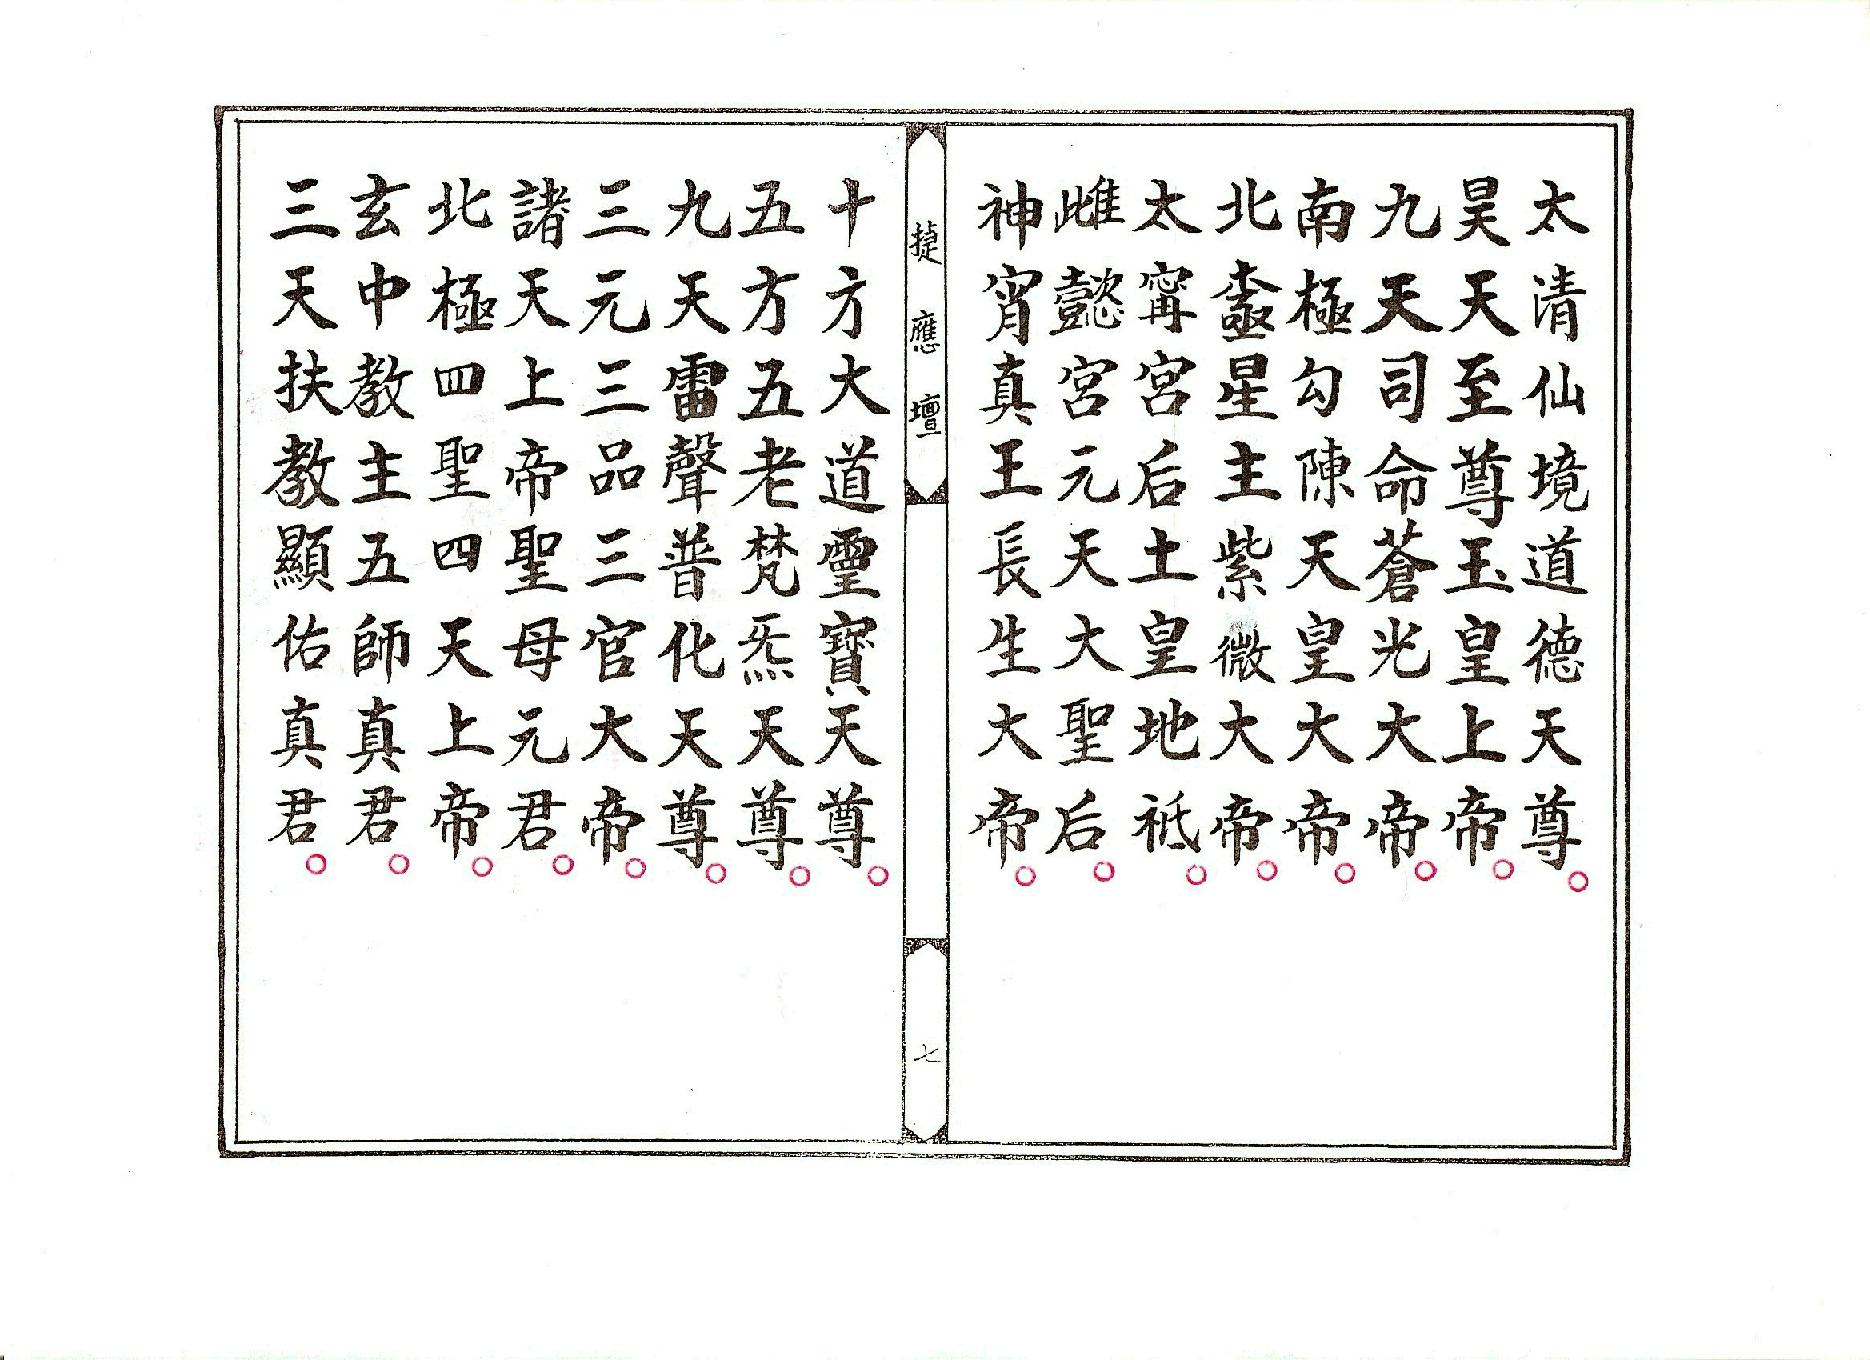 太清仙境道德天尊
昊天至尊玉皇上帝
九天司命蒼光大帝
南極勾陳天皇大帝
北星主紫微大帝
太甯宮后土皇地祇
雌懿宮元天大聖后
神宵真王長生大帝
㨗應壇
七
十方大道霊寶天尊
五方五老梵炁天尊
九天雷聲普化天尊
三元三品三官大帝
諸天上帝聖母元君
北極四聖四天上帝
玄中教主五師真君
三天扶教顯佑真君